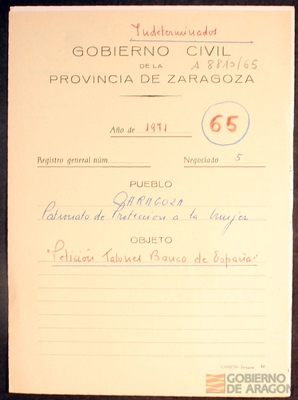 Indeterminados
GOBIERNO CIVIL
DE LA
A 8810/65
PROVINCIA DE ZARAGOZA
Año de 1971
65
Registro general núm.
Negociado 5
PUEBLO
ZARAGOZA
Patronato de Protección a la Mujer
OBJETO
"Petición Talones Banco de España"
GOBIERNO
DE ARAGON